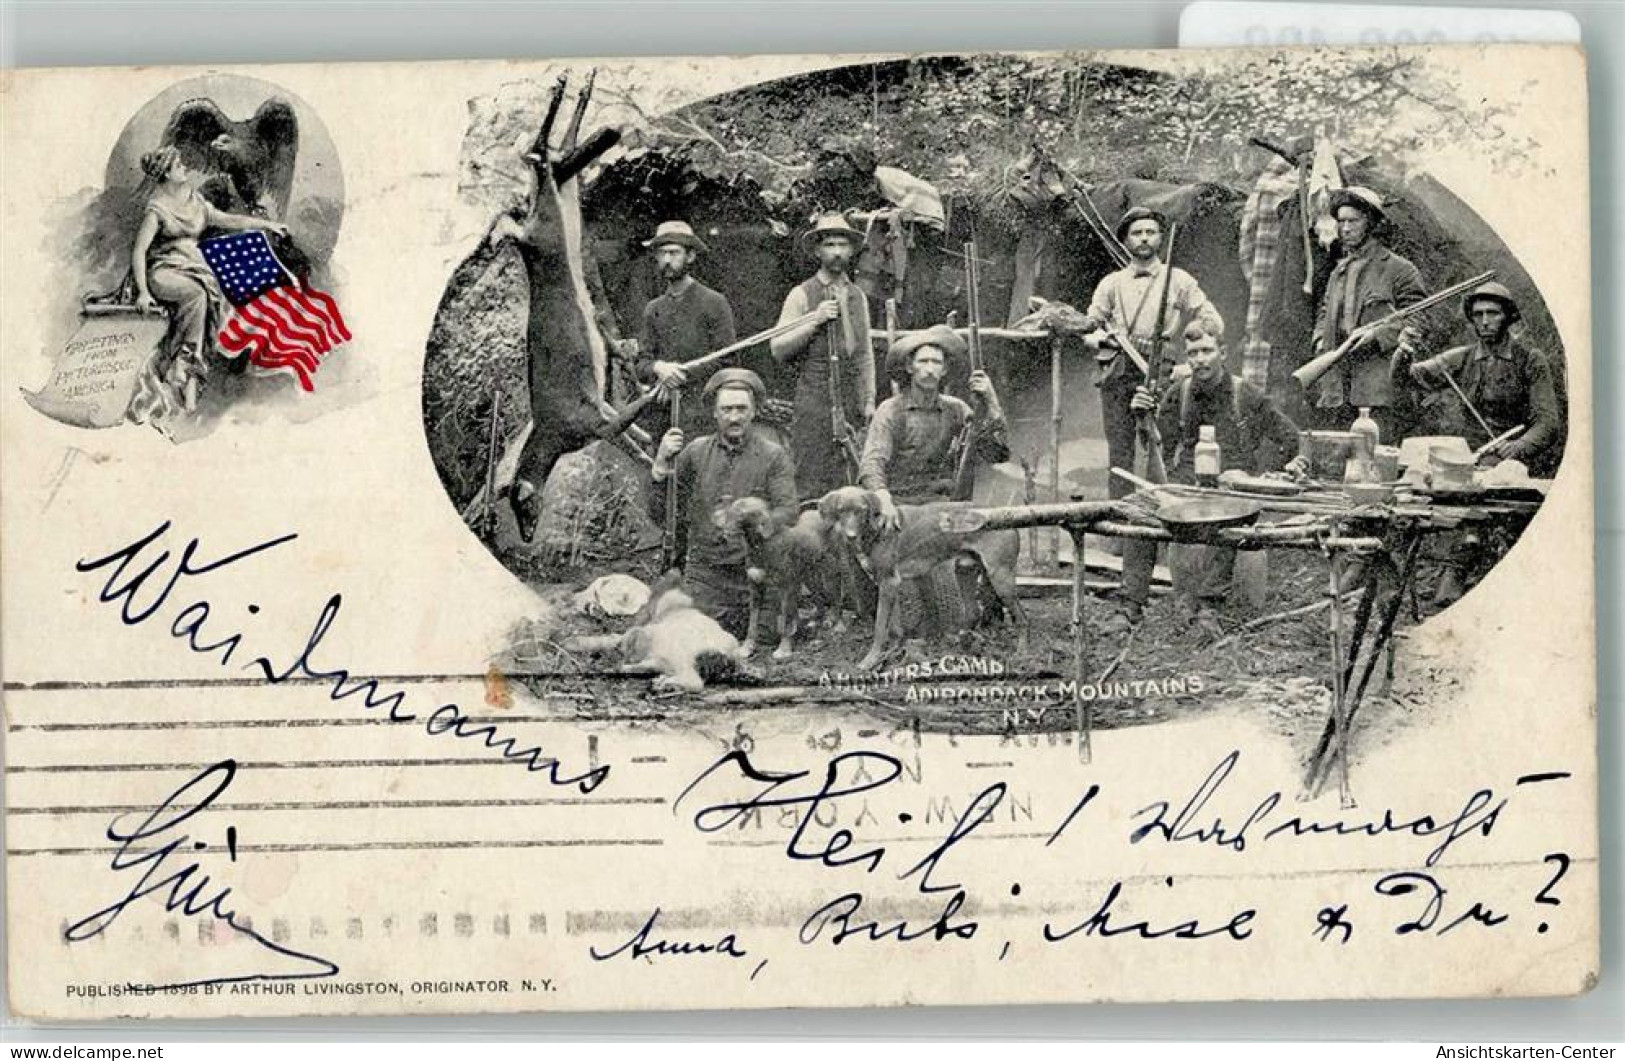 GREETINGS
FROM
PICTURESQUE
AMERICA
A HUNTERS CAMP
ADIRONDACK MOUNTAINS
N.Y.
Waidmanns Heil! Was macht
Anna, Bubs, Mise & Du?
NEW YORK
N.Y.
PUBLISHED 1898 BY ARTHUR LIVINGSTON, ORIGINATOR N.Y.
www.delcampe.net
Ansichtskarten-Center